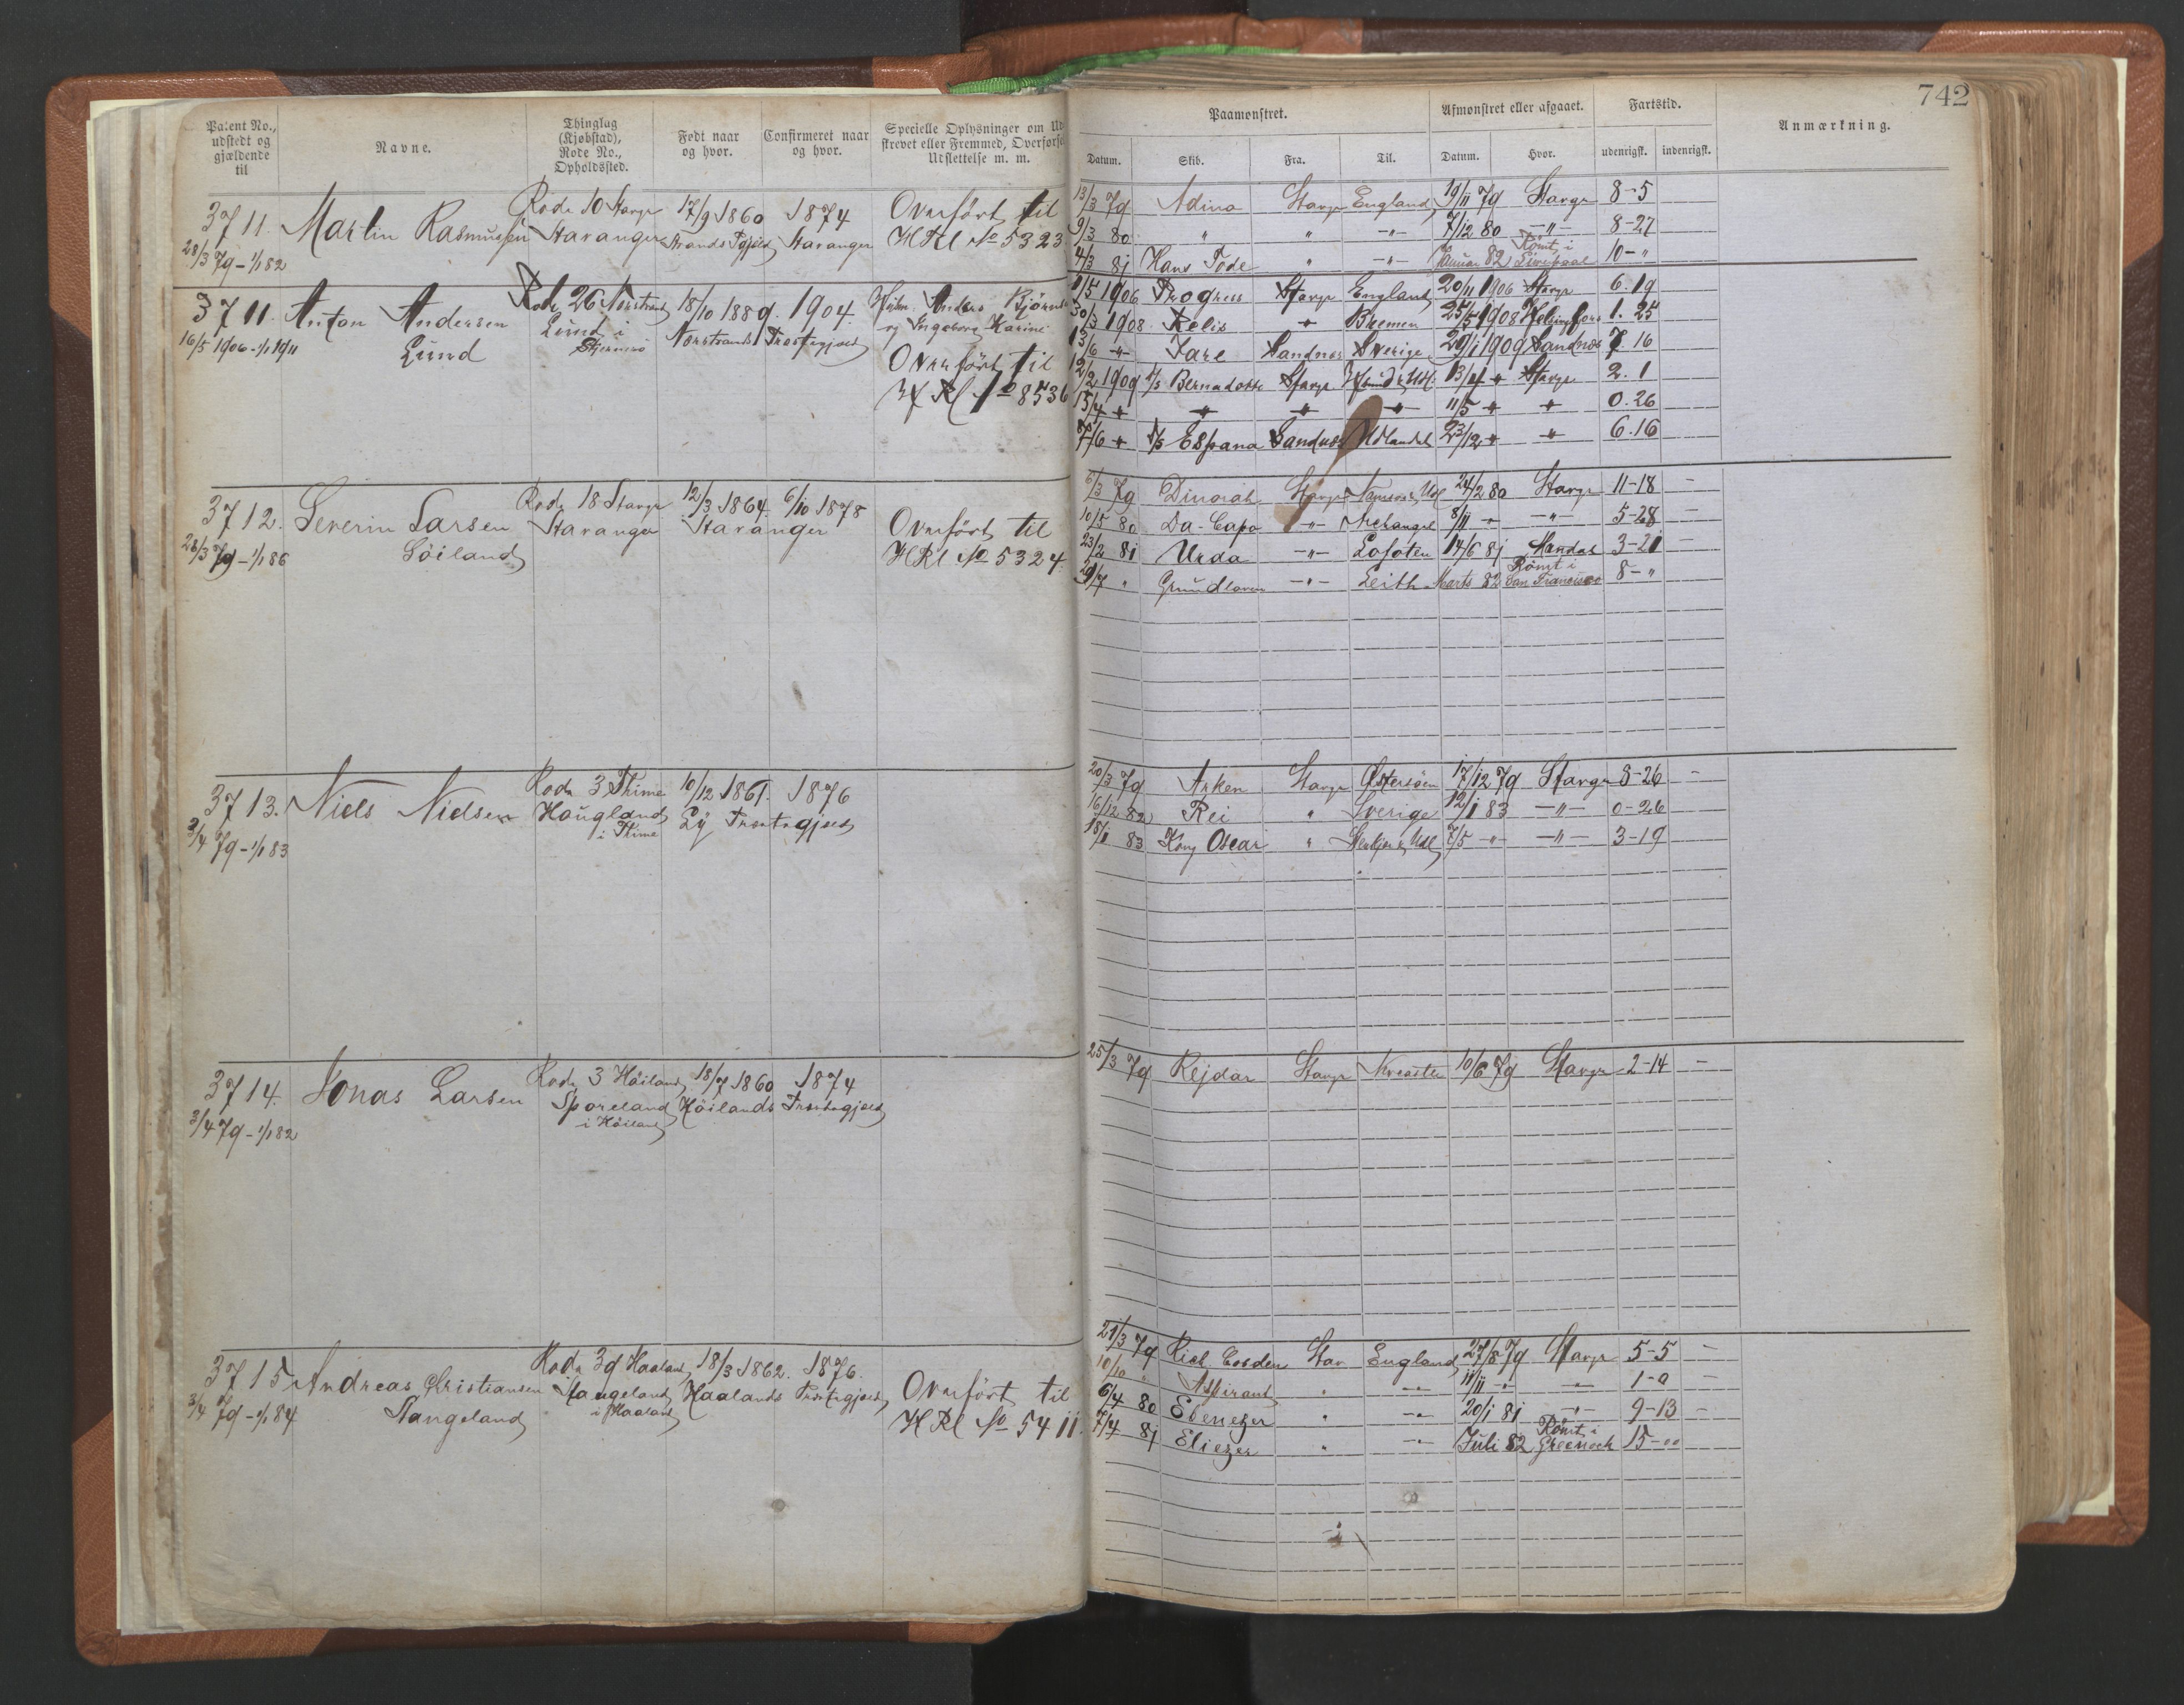 742
Patent No., udstedt og gjældende til
Navne.
Thinglag (Kjøbstad), Rode No., Opholdssted.
Født naar og hvor.
Confirmeret naar og hvor.
Specielle Oplysninger om Ud
skrevet eller Fremmed, Overførse
Udslettelse m. m.
Paamønstret.
Afmønstret eller afgaaet.
Fartstid.
Anmærkning.
Datum. Skib. Fra. Til. Datum. Hvor. udenrigsk. indenrigsk.
3711. Martin Rasmussen Rode 10 Stavgr 17/9 1860 1874 Overført til
28/3 79 - 1/1 82 Stavanger Strands Pgjæld Stavanger HRl No 5323
13/3 79 Adina Stavgr England 19/11 79 Stavgr 8-5
9/3 80 " " -"- 7/12 80 -"- 8-27
4/3 81 Hans Tode " -"- Januar 82 Rømt i Liverpool 10-"
3711. Anton Andersen Rode 26 Norstrand 18/10 1889. 1904.
16/5 1906 - 1/1 1911 Lund Lund i Norstrands Præstegjæld
og Ingeborg Karine
Overført til
HRl No 8536
1/5 1906 Progress Stavgr England 20/11 1906 Stavgr 6.19
30/3 1908 Relis " Bremen 25/5 1908 Helsingfors 1.25
13/6 -"- Fare Sandnæs Sverige 29/1 1909 Sandnæs 7.16
12/2 1909 S/s Bernadotte Stavgr 13/4 " Stavgr 2.1
15/4 " " " " 11/5 " " 0.26
7/6 " S/s Espana Sandnæs Udlandet 23/12 " " 6.16
3712. Severin Larsen Rode 18 Stavgr 12/3 1864. 6/10 1878 Overført til
28/3 79 - 1/1 86 Löiland Stavanger Stavanger HRl No 5324.
6/3 79 Dinorah Stavgr Namsos & Udl 24/2 80 Stavgr 11-18 -
10/5 80 Da-Capo -"- Archangel 8/11 -"- -"- 5-28 -
23/2 81 Urda -"- Lofoten 14/6 81 Mandal 3-21 -
29/7 " Grundloven -"- Leith Marts 82 Rømt i San Francisco 8-"
3713. Niels Nielsen Rode 3 Thime 10/12 1861. 1876
3/4 79 - 1/1 83 Haugland i Thime Ly Præstegjæld
20/3 79 Arken Stavgr Østersøen 17/12 79 Stavgr 8-26 -
16/12 82 Rei " Sverige 12/1 83 -"- 0-26
18/1 83 Kong Oscar " 7/5 -"- -"- 3-19
3714. Jonas Larsen Rode 3 Höiland 18/7 1860 1874
3/4 79 - 1/1 82 Sporeland i Höiland Höilands Præstegjæld
25/3 79 Rejdar Stavgr 10/6 79 Stavgr 2-14 -
3715 Andreas Christiansen Rode 39 Haaland 18/3 1862. 1876. Overført til
3/4 79 - 1/1 84 Stangeland Stangeland i Haaland Haalands Præstegjæld HRl No 5411.
21/3 79 Rich Cosden Stav England 27/8 79 Stavgr 5-5 -
10/10 " Aspirant " -"- 11/11 -"- -"- 1-0 -
6/4 80 Ebenezer " -"- 20/1 81 -"- 9-13 -
7/4 81 Eliezer " -"- Juli 82 Rømt i Greenock 15-00